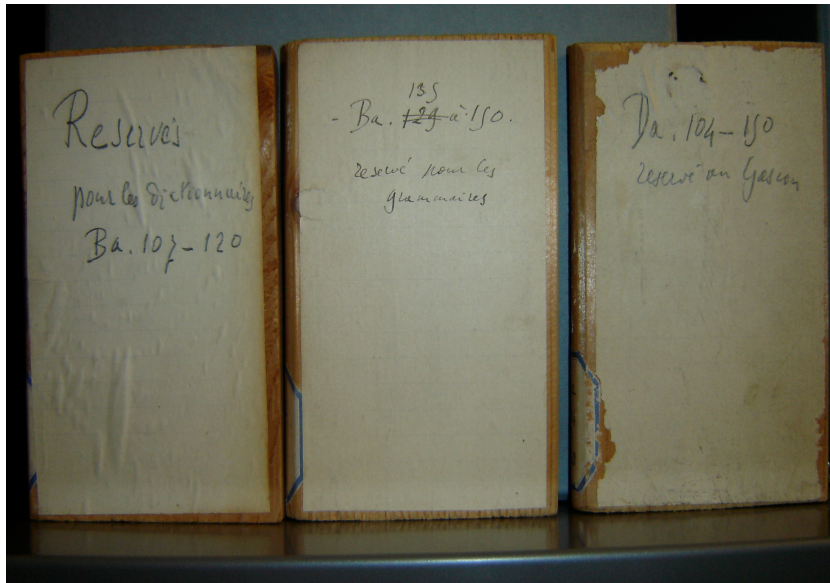 Reservés
pour les dictionnaires
Ba. 107-120
135
- Ba. à 150.
reservé pour les
grammaires
Da. 104-150
reservé au Gascon